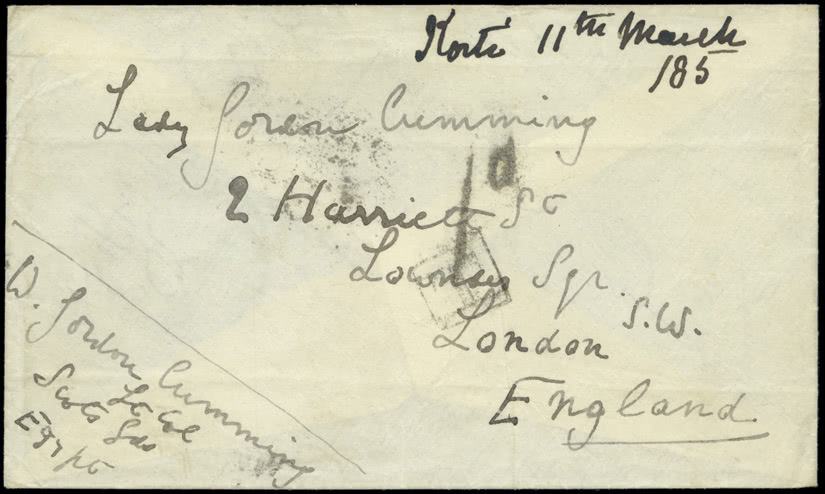 Korti 11th March
185
Lady Gordon Cumming
2 Harriett St
Lowndes Sqr. S.W.
London
England
W. Gordon Cumming
Lt Col
Scots Gds
Egypt